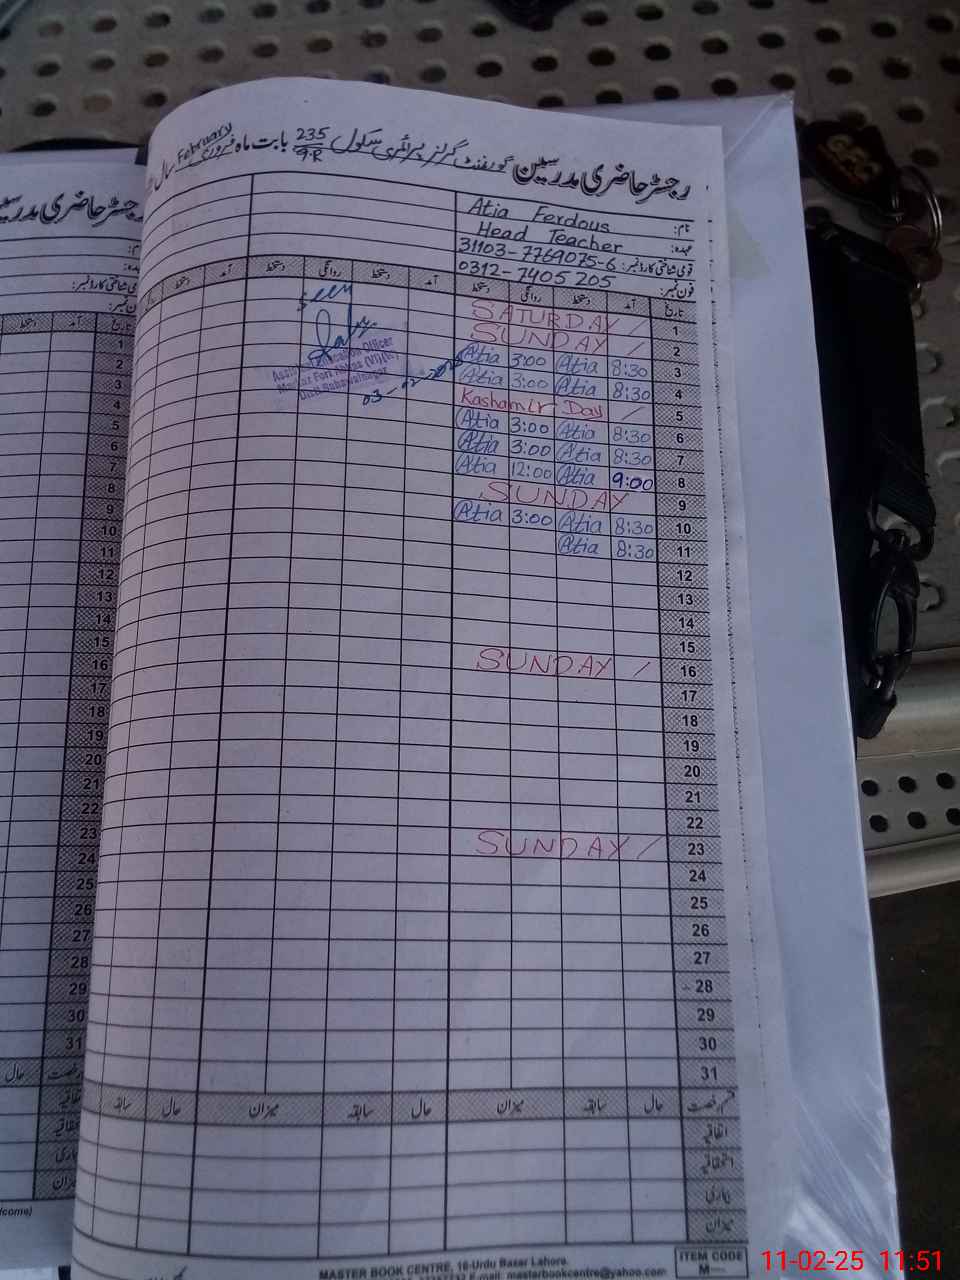 رجسٹر حاضری مدرسین گورنمنٹ گرلز پرائمری سکول 235/9-R بابت ماہ فروری February سال
نام: Atia Ferdous
عہدہ: Head Teacher
قومی شناختی کارڈ نمبر: 31103-7769075-6
فون نمبر: 0312-7405205
تاریخ آمد دستخط روانگی دستخط آمد دستخط روانگی دستخط آمد دستخط
1 SATURDAY /
2 SUNDAY /
3 8:30 Atia 3:00 Atia
4 8:30 Atia 3:00 Atia
5 Kashamir Day /
6 8:30 Atia 3:00 Atia
7 8:30 Atia 3:00 Atia
8 9:00 Atia 12:00 Atia
9 SUNDAY
10 8:30 Atia 3:00 Atia
11 8:30 Atia
12
13
14
15
16 SUNDAY /
17
18
19
20
21
22
23 SUNDAY /
24
25
26
27
28
29
30
31
Seen
Education Officer
Markaz Fort Abbas
Distt Bahawalnagar
03-02-2025
قسم رخصت حال سابقہ میزان حال سابقہ میزان حال سابقہ
اتفاقیہ
استحقاقیہ
بیماری
میزان
MASTER BOOK CENTRE, 16-Urdu Bazar Lahore.
E-mail: masterbookcentre@yahoo.com
ITEM CODE
M
رجسٹر حاضری مدرسین
تاریخ آمد دستخط
1
2
3
4
5
6
7
8
9
10
11
12
13
14
15
16
17
18
19
20
21
22
23
24
25
26
27
28
29
30
31
رخصت حال
11-02-25 11:51